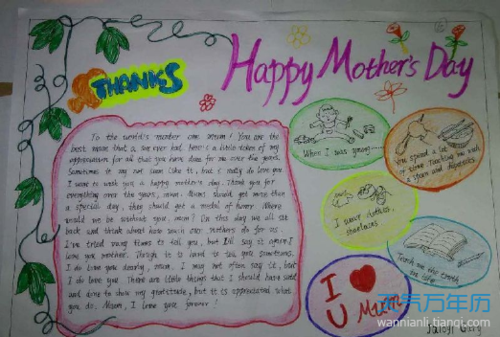 THANKS
Happy Mother's Day
To the world's number one mum! You are the
best mum that a we ever had. here's a little token of my
appreciation for all that you have done for me over the years.
Sometimes it may not seem like it, but I really do love you
I want to wish you a happy mother's day. Thank you for
everything over the years, mum. Mums should get more than
a special day, they should get a medal of honor. Where
would we be without you, mum? On this day we all sit
back and think about how much our mothers do for us.
I've tried many times to tell you, but I'll say it again I
love you mother. Though it is hard to tell you sometimes.
I do love you dearly, mum. I may not often say it, but
I do love you. There are little things that I should have said
and done to show my gratitude, but it is appreciated what
you do. Mum, I love you forever!
When I was young
You spend a lot
of time teaching me
I wear clothes,
Teach me the
I ❤ U Mum
天气万年历
wannianli.tianqi.com